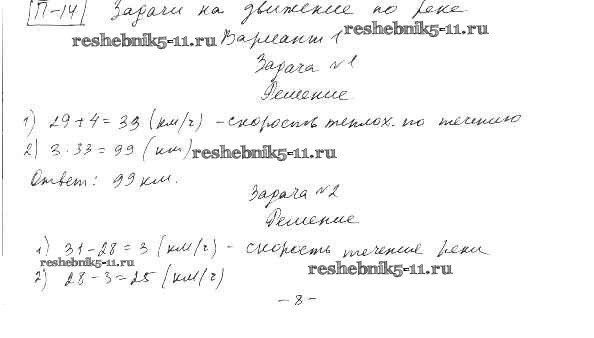 П-14 Задачи на движение по реке
reshebnik5-11.ru Вариант 1 reshebnik5-11.ru
Задача №1
Решение
1) 29 + 4 = 33 (км/ч) - скорость теплох. по течению
2) 3 · 33 = 99 (км) reshebnik5-11.ru
Ответ: 99 км.
Задача №2
Решение
1) 31 - 28 = 3 (км/ч) - скорость течение реки
reshebnik5-11.ru
2) 28 - 3 = 25 (км/ч) reshebnik5-11.ru
- 8 -